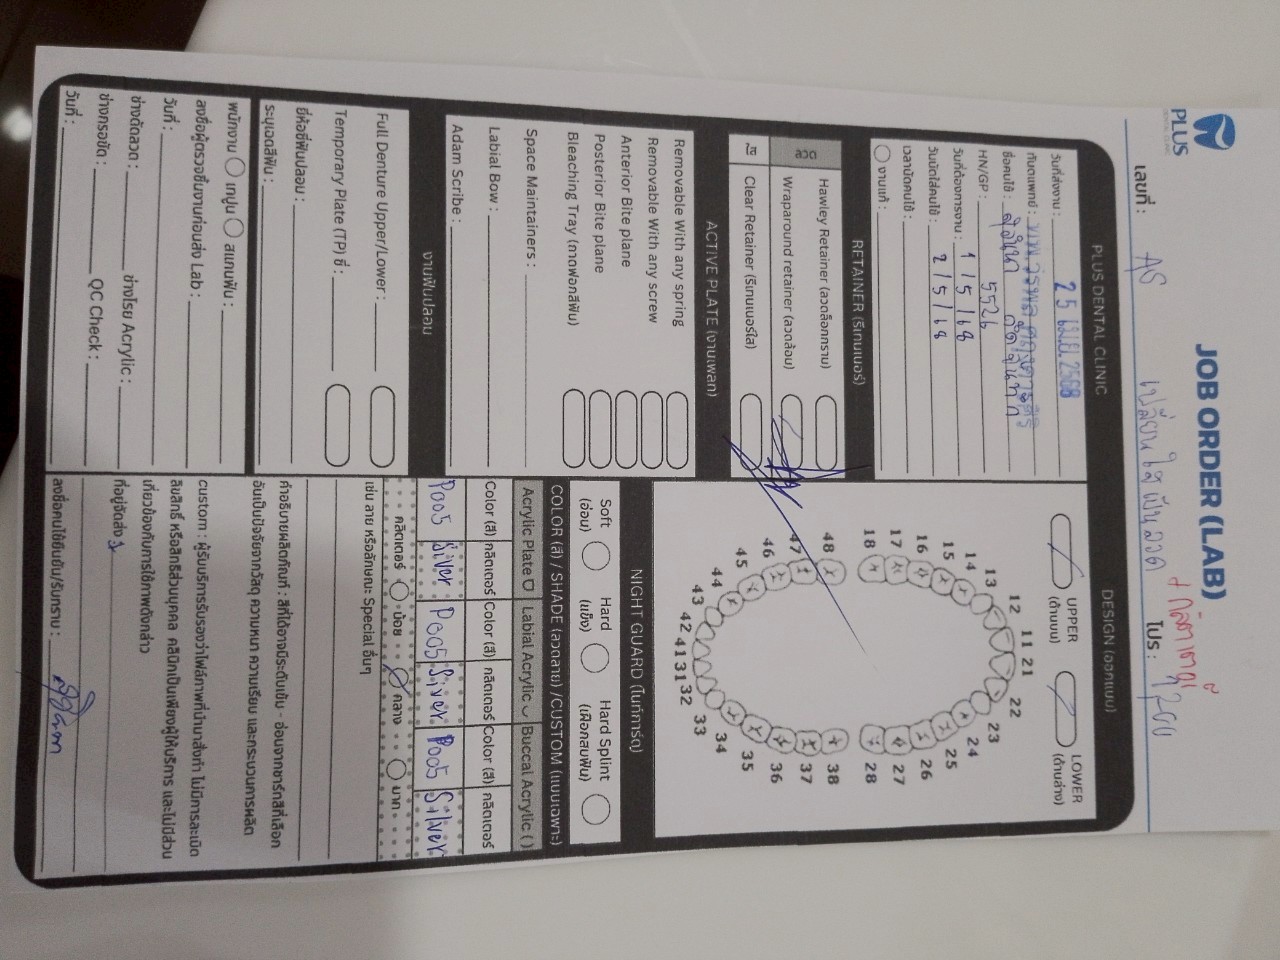 PLUS
DENTAL CLINIC
JOB ORDER (LAB)
เลขที่ :
เปลี่ยนใสเป็นลวด
โปร :
+ กลิตเตอร์
PLUS DENTAL CLINIC
วันที่ส่งงาน : 25 เม.ย. 2568
ทันตแพทย์ :
ชื่อคนไข้ :
HN/GP : 5526
วันที่ต้องการงาน : 1/5/68
วันนัดใส่คนไข้ : 2/5/68
เวลานัดคนไข้ :
งานแก้ :
RETAINER (รีเทนเนอร์)
ลวด
Hawley Retainer (ลวดล็อกกราม)
Wraparound retainer (ลวดล้อม)
ใส
Clear Retainer (รีเทนเนอร์ใส)
ACTIVE PLATE (งานเพลท)
Removable With any spring
Removable With any screw
Anterior Bite plane
Posterior Bite plane
Bleaching Tray (ถาดฟอกสีฟัน)
Space Maintainers :
Labial Bow :
Adam Scribe :
งานฟันปลอม
Full Denture Upper/Lower :
Temporary Plate (TP) ซี่ :
ยี่ห้อซี่ฟันปลอม :
ระบุเฉดสีฟัน :
พนักงาน เทปูน สแกนฟัน :
ลงชื่อผู้ตรวจชิ้นงานก่อนส่ง Lab :
วันที่ :
ช่างดัดลวด : ช่างโรย Acrylic :
ช่างกรอขัด : QC Check :
วันที่ :
DESIGN (ออกแบบ)
UPPER
(ด้านบน)
LOWER
(ด้านล่าง)
18 17 16 15 14 13 12 11 21 22 23 24 25 26 27 28
48 47 46 45 44 43 42 41 31 32 33 34 35 36 37 38
NIGHT GUARD (ไนท์การ์ด)
Soft
(อ่อน)
Hard
(แข็ง)
Hard Splint
(เฝือกสบฟัน)
COLOR (สี) / SHADE (ลวดลาย) /CUSTOM (แบบเฉพาะ)
Acrylic Plate Labial Acrylic Buccal Acrylic ( )
Color (สี) กลิตเตอร์ Color (สี) กลิตเตอร์ Color (สี) กลิตเตอร์
P005 Siver P005 Siver P005 Silver
กลิตเตอร์ น้อย กลาง มาก
เช่น ลาย หรือลักษณะ Special อื่นๆ
คำอธิบายผลิตภัณฑ์ : สีที่ได้อาจมีระดับเข้ม - อ่อนจากชาร์ทสีที่เลือก
อันเป็นปัจจัยจากวัสดุ ความหนา ความเรียบ และกระบวนการผลิต
custom : ผู้รับบริการรับรองว่าไฟล์ภาพที่นำมาสั่งทำ ไม่มีการละเมิด
ลิขสิทธิ์ หรือสิทธิส่วนบุคคล คลินิกเป็นเพียงผู้ให้บริการ และไม่มีส่วน
เกี่ยวข้องกับการใช้ภาพดังกล่าว
ที่อยู่จัดส่ง
ลงชื่อคนไข้ยืนยัน/รับทราบ :